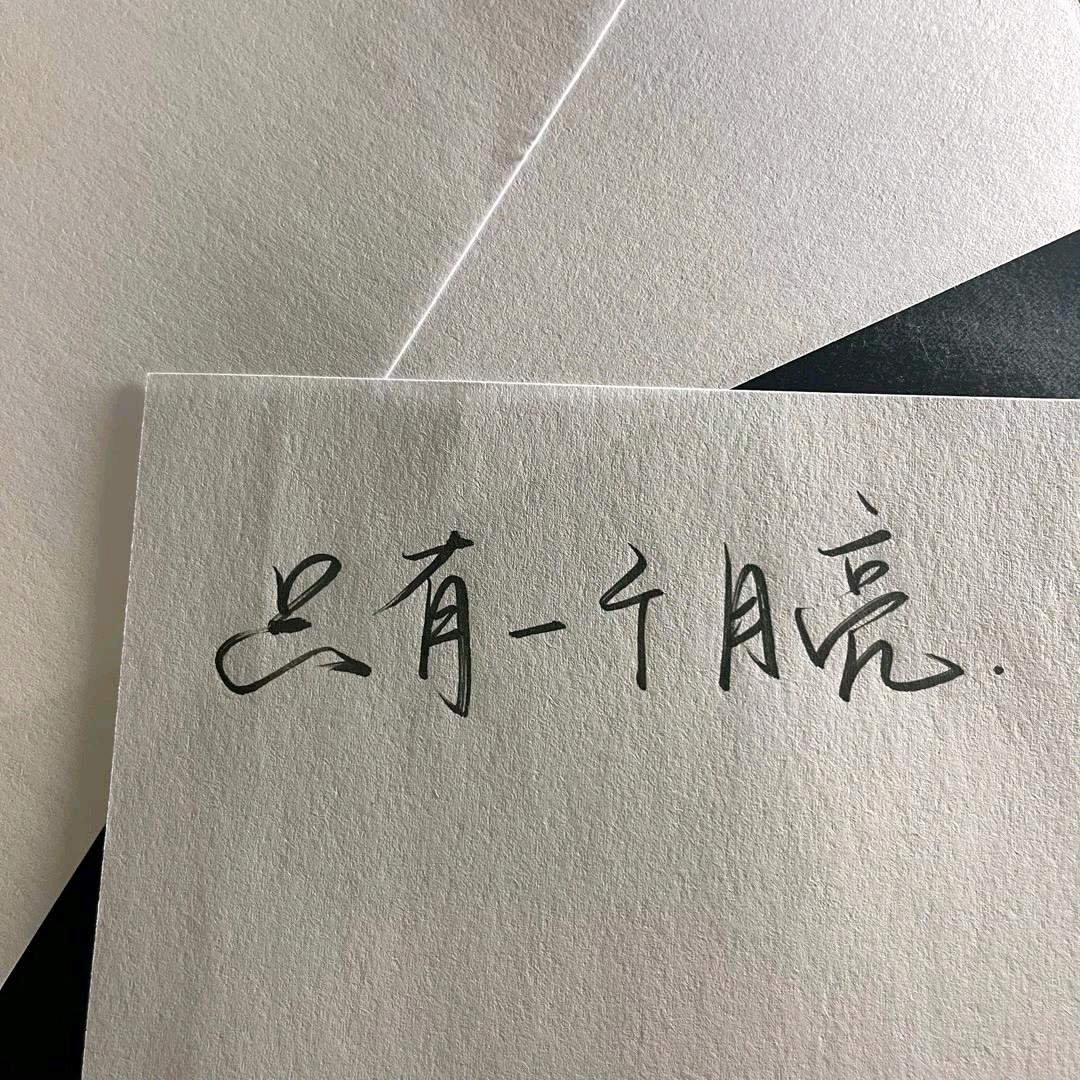 只有一个月亮.